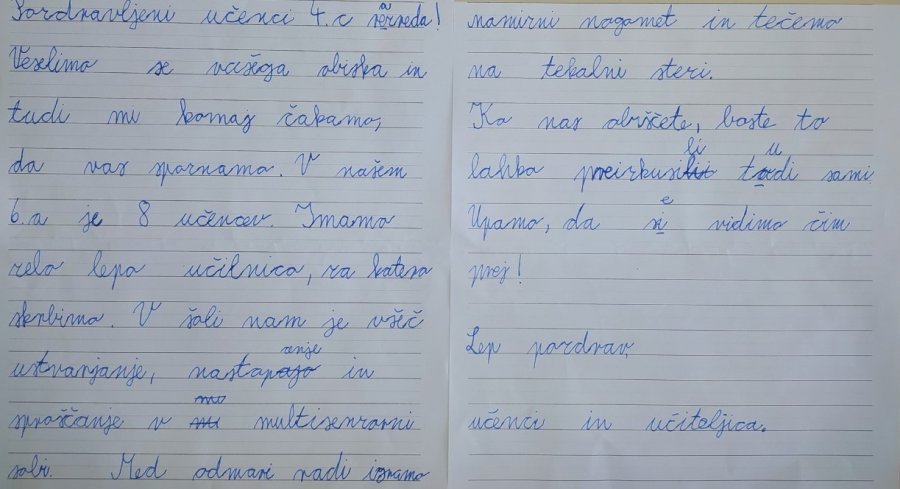 Pozdravljeni učenci 4. c razreda!
Veselimo se vašega obiska in
tudi mi komaj čakamo,
da vas spoznamo. V našem
6. a je 8 učencev. Imamo
zelo lepo učilnico, za katero
skrbimo. V šoli nam je všeč
ustvarjanje, nastopanje in
sproščanje v multisenzorni
sobi. Med odmori radi igramo
namizni nogomet in tečemo
na tekalni stezi.
Ko nas obiščete, boste to
lahko preizkusili tudi sami.
Upamo, da se vidimo čim
prej!
Lep pozdrav,
učenci in učiteljica.